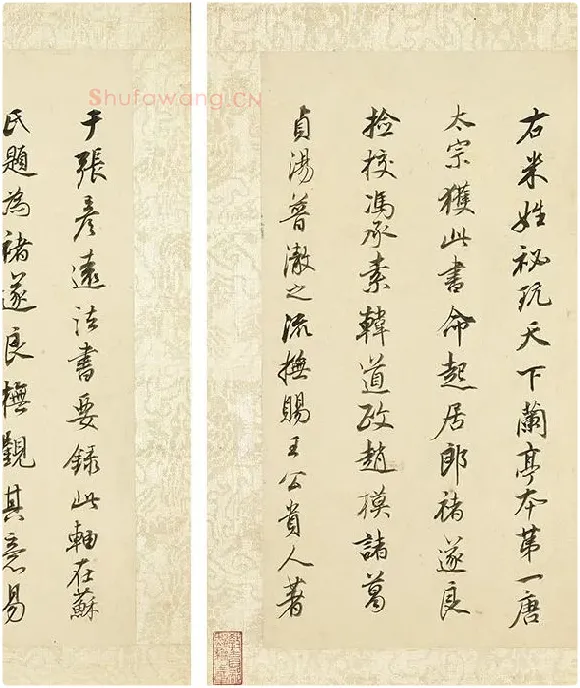 右米姓祕玩天下蘭亭本第一唐
太宗獲此書命起居郎褚遂良
撿挍馮承素韓道政趙模諸葛
貞湯普澈之流撫賜王公貴人著
于張彥遠法書要録此軸在蘇
氏題為褚遂良撫觀其意易
Shufawang.CN